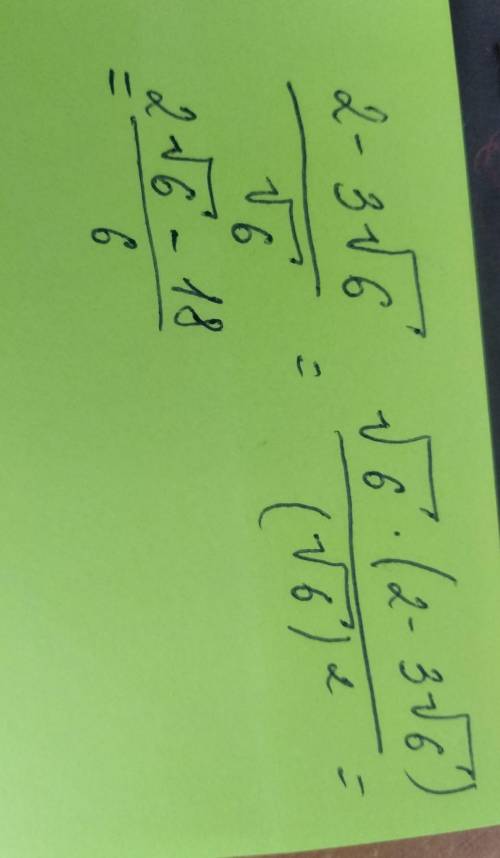 (2 - 3√6) / √6 = (√6 · (2 - 3√6)) / (√6)² =
= (2√6 - 18) / 6